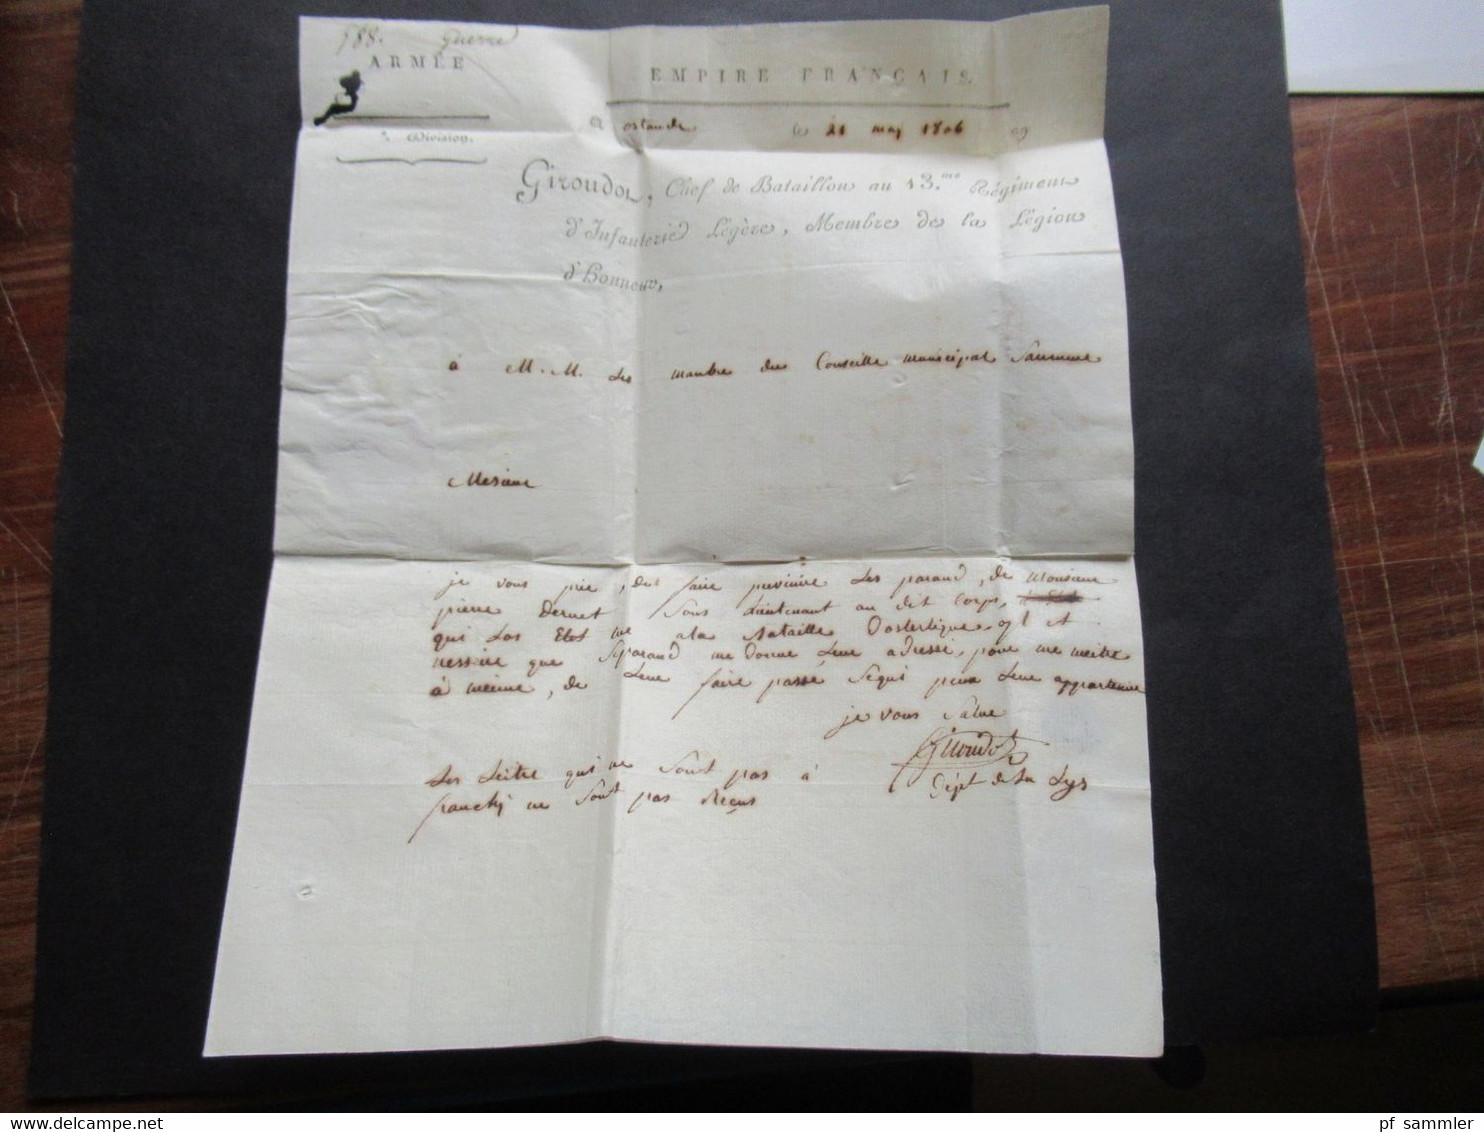 188. Guerre
ARMÉE
EMPIRE FRANÇAIS.
A ostande le 21 may 1806
e Division.
Giroudot, Chef de Bataillon au 13.me Régiment
d'Infanterie Légère, Membre de la Légion
d'Honneur,
à M. M. Les manbre du Conseille municipal Saumure
Mesieur
je vous prie, de faire previnire Les parand, de Monsieur
pierre Dernet Sous Lieutenant au dit Corps,
qui Las Etet tue ala Bataille Dosterligue, il et
nessire que Separand me donne Leur adresse, pour me meitre
à meime, de Leur faire passé Sequi peux Leur appartenire
je vous Salue
Giroudot
Les Leitre qui ne Sont pas à
franchj ne Sont pas Reçus
Dépt de La Lys
pf_sammler